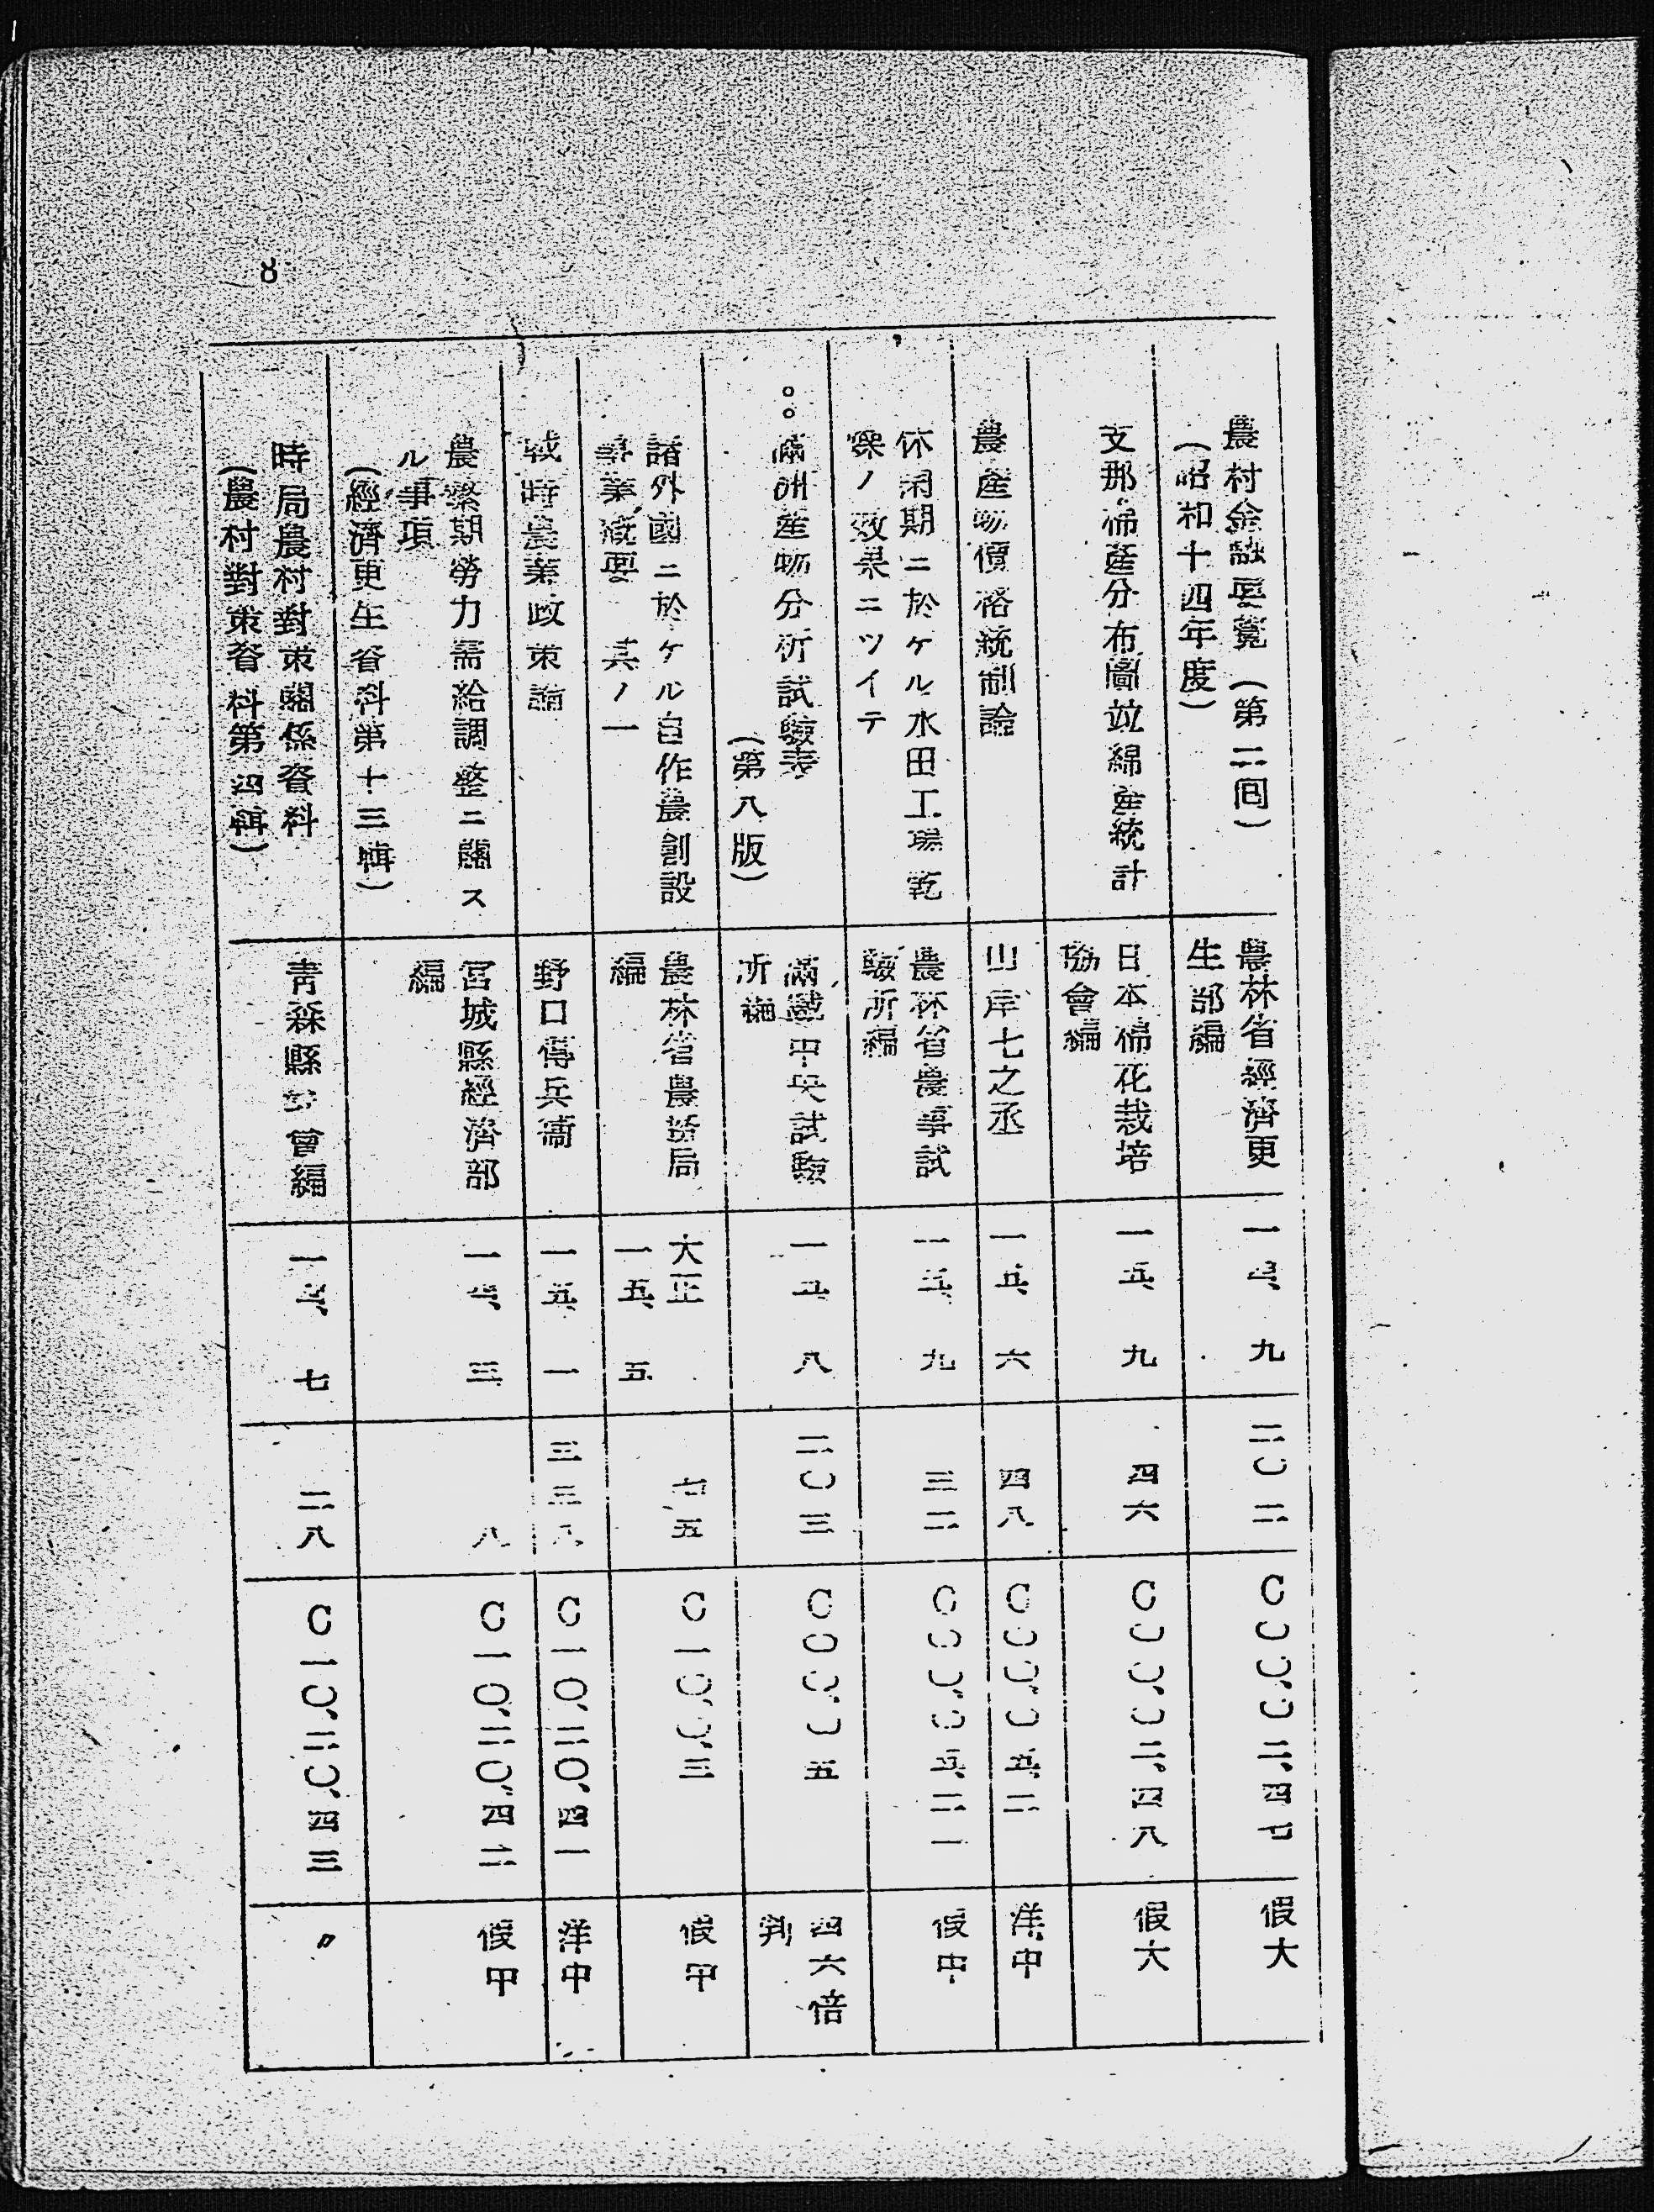 8
農村金融要覽（第二囘）
（昭和十四年度）
農林省經濟更
生部編
一五、九
二〇二
〇〇〇、〇二、四七
假大
支那棉産分布圖竝綿産統計
日本棉花栽培
協會編
一五、九
四六
〇〇〇、〇二、四八
假大
農産物價格統制論
山岸七之丞
一五、六
四八
〇〇〇、〇五、二
洋中
休閑期ニ於ケル水田工場乾
燥ノ效果ニツイテ
農林省農事試
驗所編
一五、九
三二
〇〇〇、〇五、二一
假中
。。滿洲産物分析試驗表
（第八版）
滿鐵中央試驗
所編
一五、八
二〇三
〇〇〇、〇五
四六倍
判
諸外國ニ於ケル自作農創設
事業概要　其ノ一
農林省農務局
編
大正
一五、五
七五
〇一〇、〇、三
假甲
戰時農業政策論
野口傳兵衞
一五、一
三三八
〇一〇、二〇、四一
洋中
農繁期勞力需給調整ニ關ス
ル事項
（經濟更生資料第十三輯）
宮城縣經濟部
編
一五、三
八
〇一〇、二〇、四二
假甲
時局農村對策關係資料
（農村對策資料第四輯）
青森縣 會編
一五、七
二八
〇一〇、二〇、四三
〃